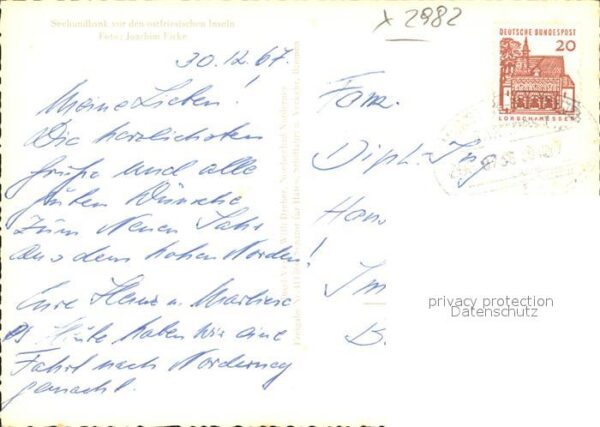 Seehundbank vor den ostfriesischen Inseln
Foto: Joachim Ficke
x 2982
30.12.67.
Meine Lieben!
Die herzlichsten
Grüße und alle
guten Wünsche
zum Neuen Jahr
aus dem hohen Norden!
Eure Heinz u.
PS Heute haben wir eine
Fahrt nach Norderney
gemacht.
DEUTSCHE BUNDESPOST
20
LORSCH/HESSEN
Fam.
Dipl. Ing
Hans
Im
B.
privacy protection
Datenschutz